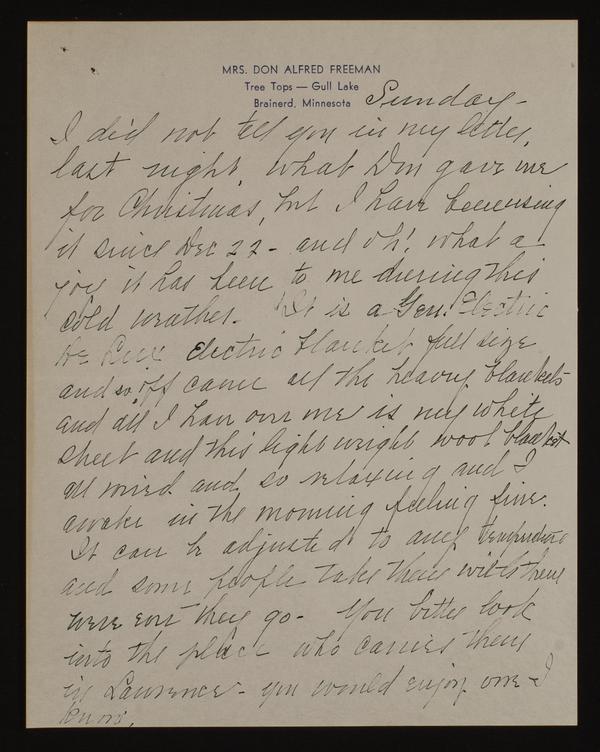 MRS. DON ALFRED FREEMAN
Tree Tops — Gull Lake
Brainerd, Minnesota
Sunday -
I did not tell you in my letter,
last night, what Don gave me
for Christmas, but I have been using
it since Dec 22 - and oh! what a
joy it has been to me during this
cold weather. It is a Gen. Electric
De Luxe Electric blanket full size
and so off came all the heavy blankets
and all I have over me is my white
sheet and this light weight wool blanket
all wired and so relaxing and I
awake in the morning feeling fine.
It can be adjusted to any temperature
and some people take them with them
were ever they go - You better look
into the place who carries them
in Lawrence - you would enjoy one I
know.